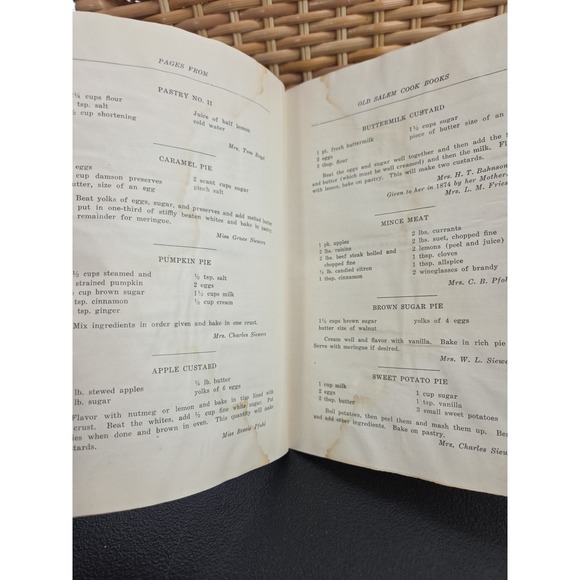 PAGES FROM
PASTRY NO. II
cups flour
tsp. salt
cup shortening
Juice of half lemon
cold water
Mrs. Tom
CARAMEL PIE
eggs
cup damson preserves
butter, size of an egg
2 scant cups sugar
pinch salt
Beat yolks of eggs, sugar, and preserves and add melted butter
put in one-third of stiffly beaten whites and bake in pastry
remainder for meringue.
Miss Grace Siewers
PUMPKIN PIE
cups steamed and
strained pumpkin
cup brown sugar
tsp. cinnamon
tsp. ginger
½ tsp. salt
2 eggs
1½ cups milk
½ cup cream
Mix ingredients in order given and bake in one crust.
Mrs. Charles Siewers
APPLE CUSTARD
lb. stewed apples
lb. sugar
¼ lb. butter
yolks of 6 eggs
Flavor with nutmeg or lemon and bake in tin lined with
crust. Beat the whites, add ½ cup fine white sugar. Put
pies when done and brown in oven. This quantity will make
Miss Bessie Pfohl
OLD SALEM COOK BOOKS
BUTTERMILK CUSTARD
1 pt. fresh buttermilk
2 eggs
1 tbsp. flour
1½ cups sugar
piece of butter size of an
Beat the eggs and sugar well together and then add the
and butter (which must be well creamed) and then the milk.
with lemon, bake on pastry. This will make two custards.
Mrs. H. T. Bahnson
Given to her in 1874 by her Mother
Mrs. L. M. Fries
MINCE MEAT
1 pk. apples
2 lbs. raisins
2 lbs. beef steak boiled and
chopped fine
½ lb. candied citron
1 tbsp. cinnamon
2 lbs. currants
2 lbs. suet, chopped fine
2 lemons (peel and juice)
1 tbsp. cloves
1 tbsp. allspice
2 wineglasses of brandy
Mrs. C. B. Pfohl
BROWN SUGAR PIE
1½ cups brown sugar
butter size of walnut
yolks of 4 eggs
Cream well and flavor with vanilla. Bake in rich pie
Serve with meringue if desired.
Mrs. W. L. Siewers
SWEET POTATO PIE
1 cup milk
2 eggs
2 tbsp. butter
1 cup sugar
1 tsp. vanilla
3 small sweet potatoes
Boil potatoes, then peel them and mash them up.
and add other ingredients. Bake on pastry.
Mrs. Charles Siewers